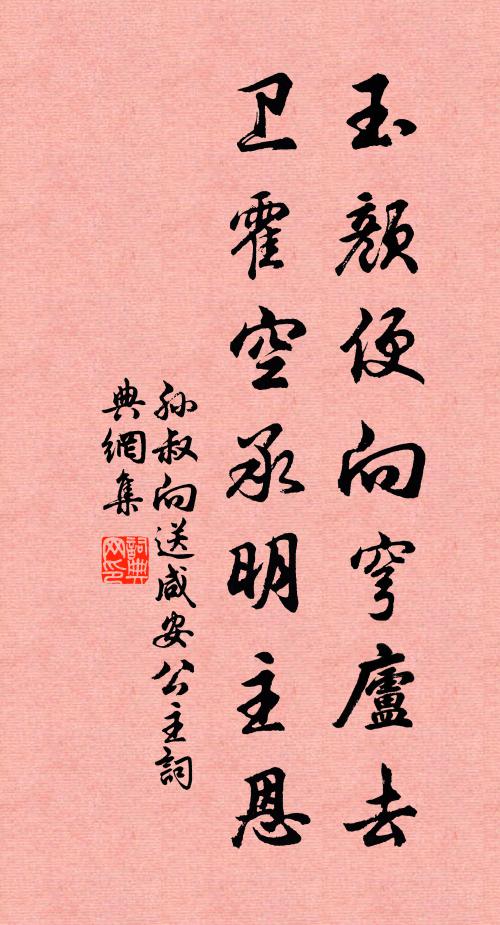 玉颜便向穹廬去
卫霍空承明主恩
孙叔向送咸安公主詞
典網集
詞典
网印